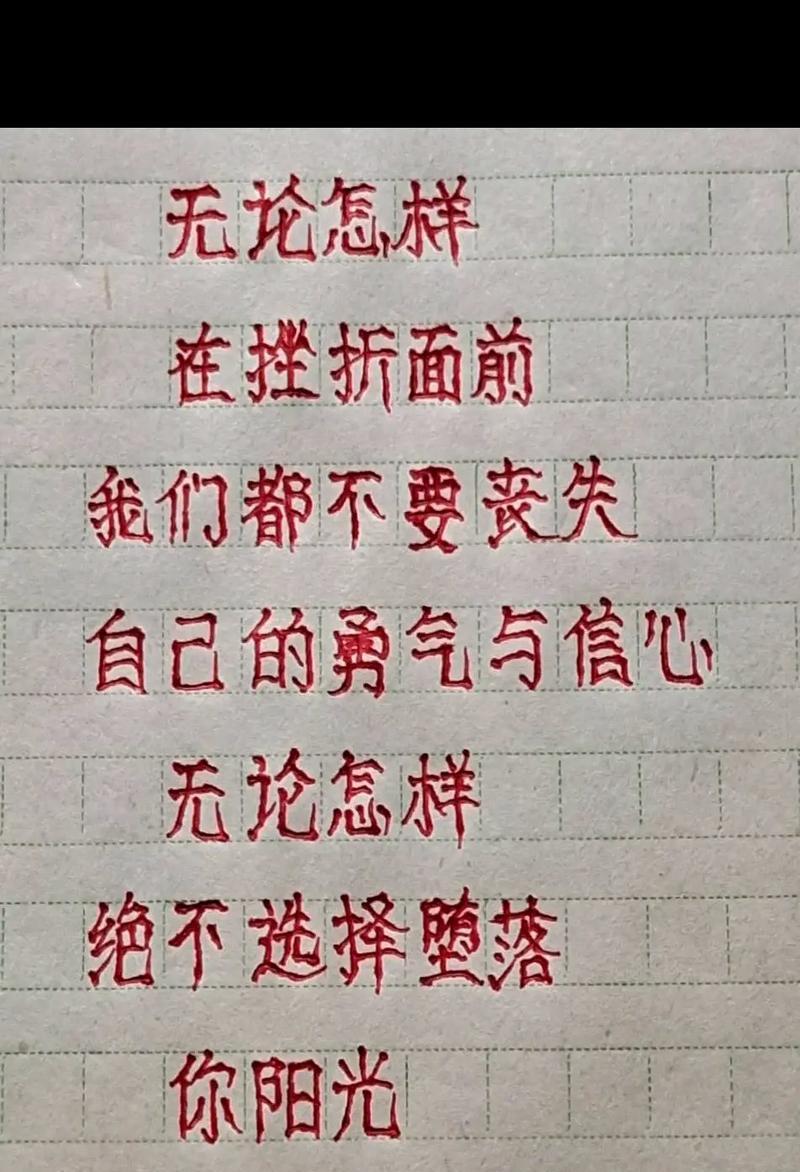 无论怎样
在挫折面前
我们都不要丧失
自己的勇气与信心
无论怎样
绝不选择堕落
你阳光